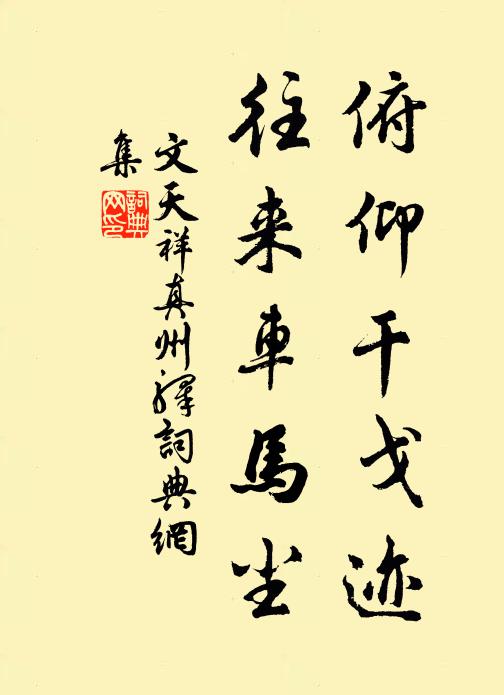 俯仰干戈迹
往来車馬尘
文天祥真州驿詞典網
集
詞典网印